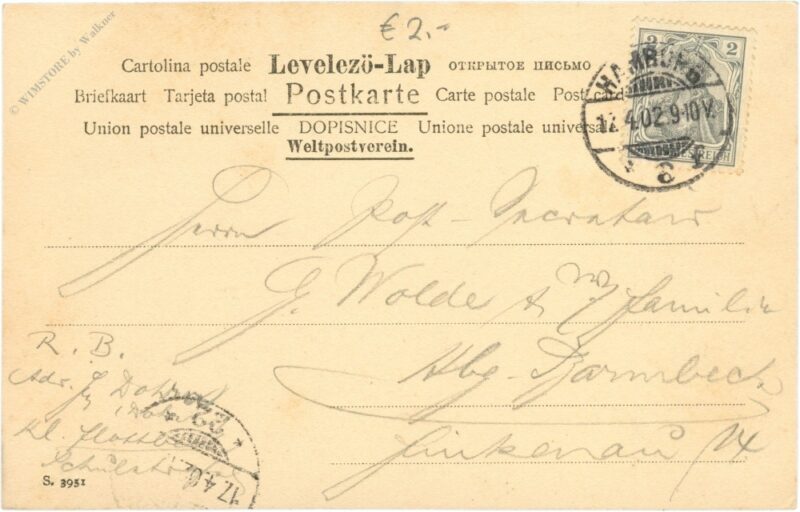 © WIMSTORE by Walkner
€ 2.-
Cartolina postale Levelező-Lap ОТКРЫТОЕ ПИСЬМО
Briefkaart Tarjeta postal Postkarte Carte postale Post card
Union postale universelle DOPISNICE Unione postale universale
Weltpostverein.
2 2
HAMBURG
17.4.02.9-10V.
* 6 1
Herrn Post-Secretair
G. Wolde & Familie
Hbg-Barmbeck
Finkenau 14
R. B.
Adr.
Kl. Flottbek
Schulstr
* 22 *
17.4.02
S. 3951